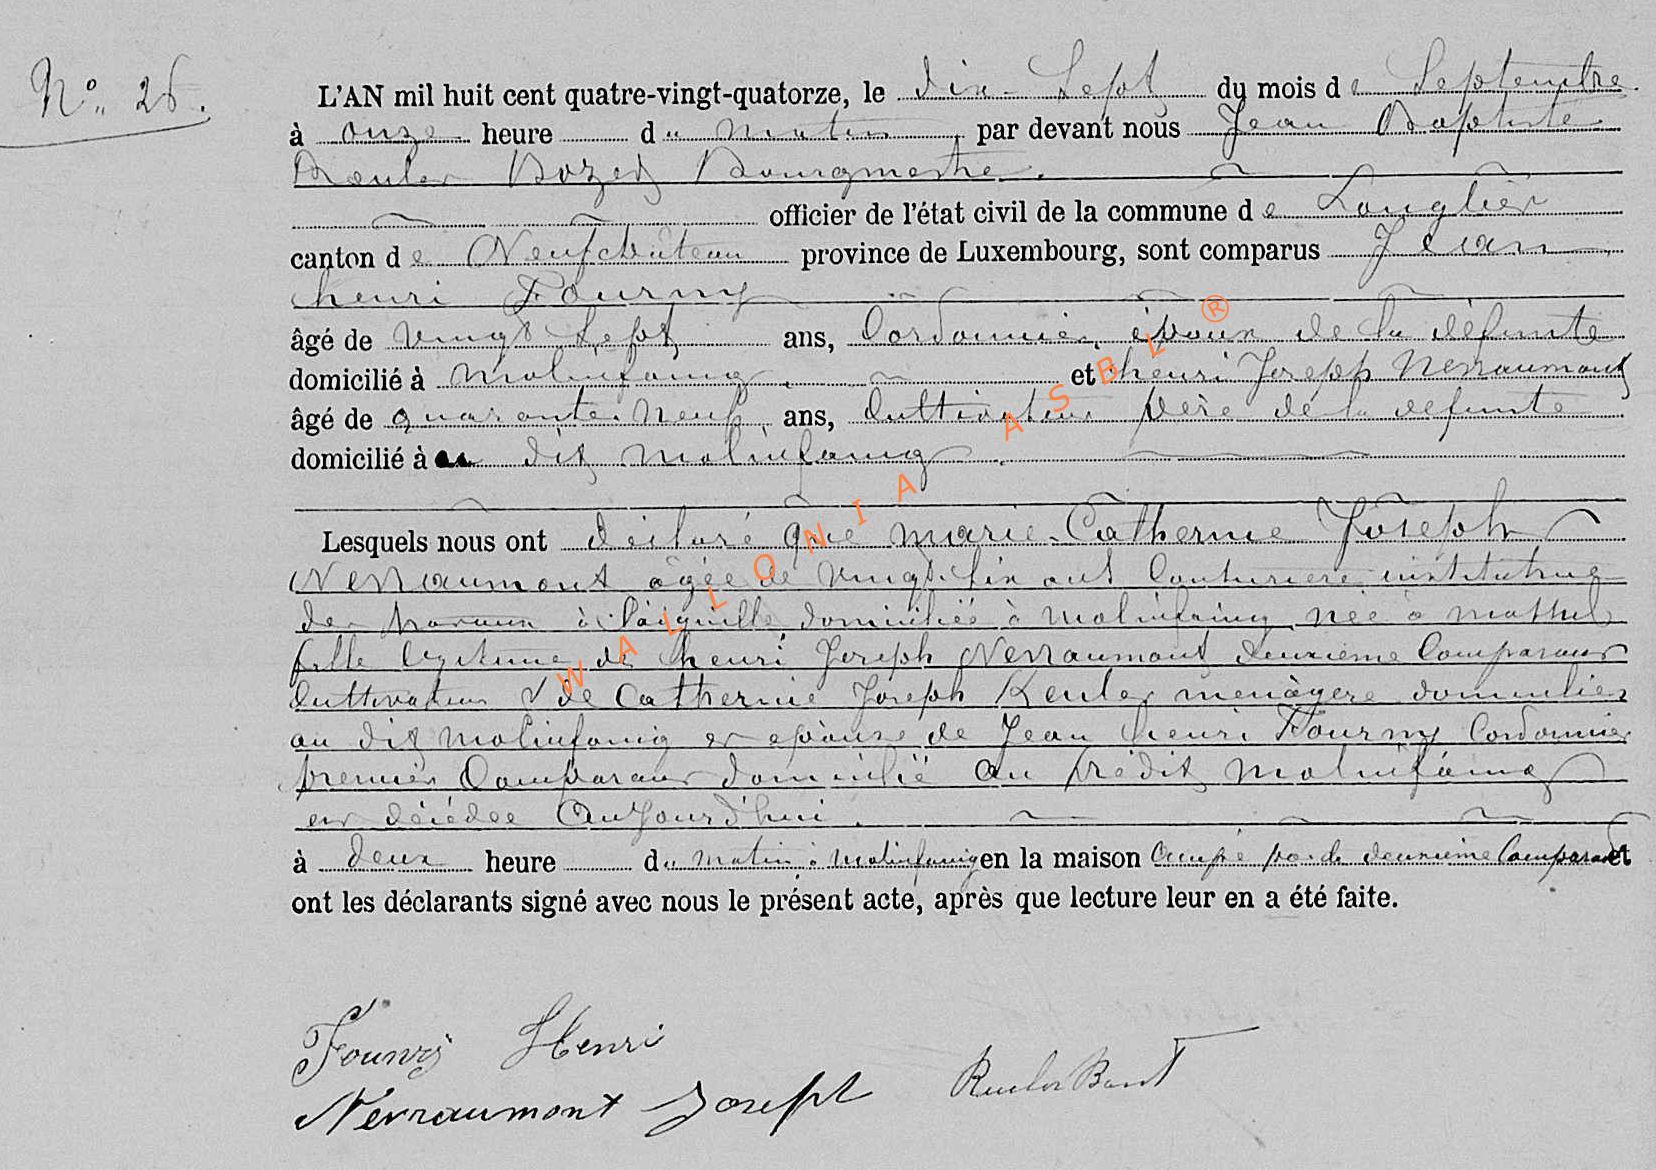 N° 26.
L'AN mil huit cent quatre-vingt-quatorze, le dix-Sept du mois de Septembre
à onze heure du matin, par devant nous Jean Baptiste
Bozet Bourgmestre.
officier de l'état civil de la commune de Longlier
canton de Neufchâteau province de Luxembourg, sont comparus Jean
henri Fourny
âgé de vingt Sept ans, Cordonnier époux de la défunte
domicilié à Molinfaing et henri Joseph Nerraumont
âgé de quarante neuf ans, Cultivateur père de la défunte
domicilié à au dit Molinfaing.
Lesquels nous ont déclaré que marie-Catherine Joseph
Nerraumont âgée de vingt-six ans Couturière institutrice
de travaux à l'aiguille domiciliée à Molinfaing née à
fille légitime de henri Joseph Nerraumont deuxième Comparant
Cultivateur & de Catherine Joseph menagère domiciliés
au dit Molinfaing et épouse de Jean henri Fourny Cordonnier
premier Comparant domicilié au prédit Molinfaing
est décédée Aujourd'hui.
à deux heure du matin à Molinfaing en la maison Occupé par le deuxième Comparant et
ont les déclarants signé avec nous le présent acte, après que lecture leur en a été faite.
Fourny Henri
Nerraumont Joseph
WALLONIA ASBL ®